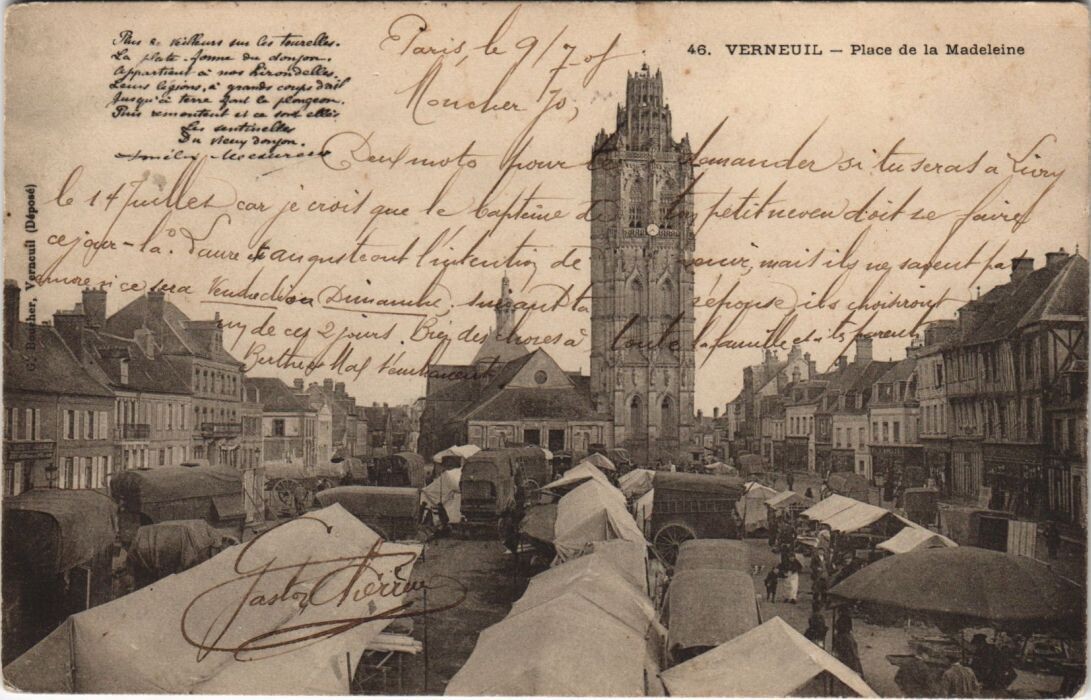 46. VERNEUIL — Place de la Madeleine
Plus de veilleurs sur les tourelles.
La plate-forme du donjon.
Appartient à nos hirondelles.
Leurs légions, à grands coups d'ail
Jusqu'à terre font le plongeon.
Puis remontent et ce sont elles
Les sentinelles
Du vieux donjon.
G. Boucher, Verneuil (Déposé)
Paris, le 9/7-05
Mon cher
Deux mots pour te demander si tu seras à Livry
le 14 Juillet car je crois que le baptême de ton petit neveu doit se faire
ce jour-là. Laure et auguste ont l'intention de venir, mais ils ne savent pas
encore si ce sera Vendredi ou Dimanche, suivant ta réponse ils choisiront
un de ces 2 jours. Bien des choses à toute la famille et à tes parents
Berthe
Gaston Pierre